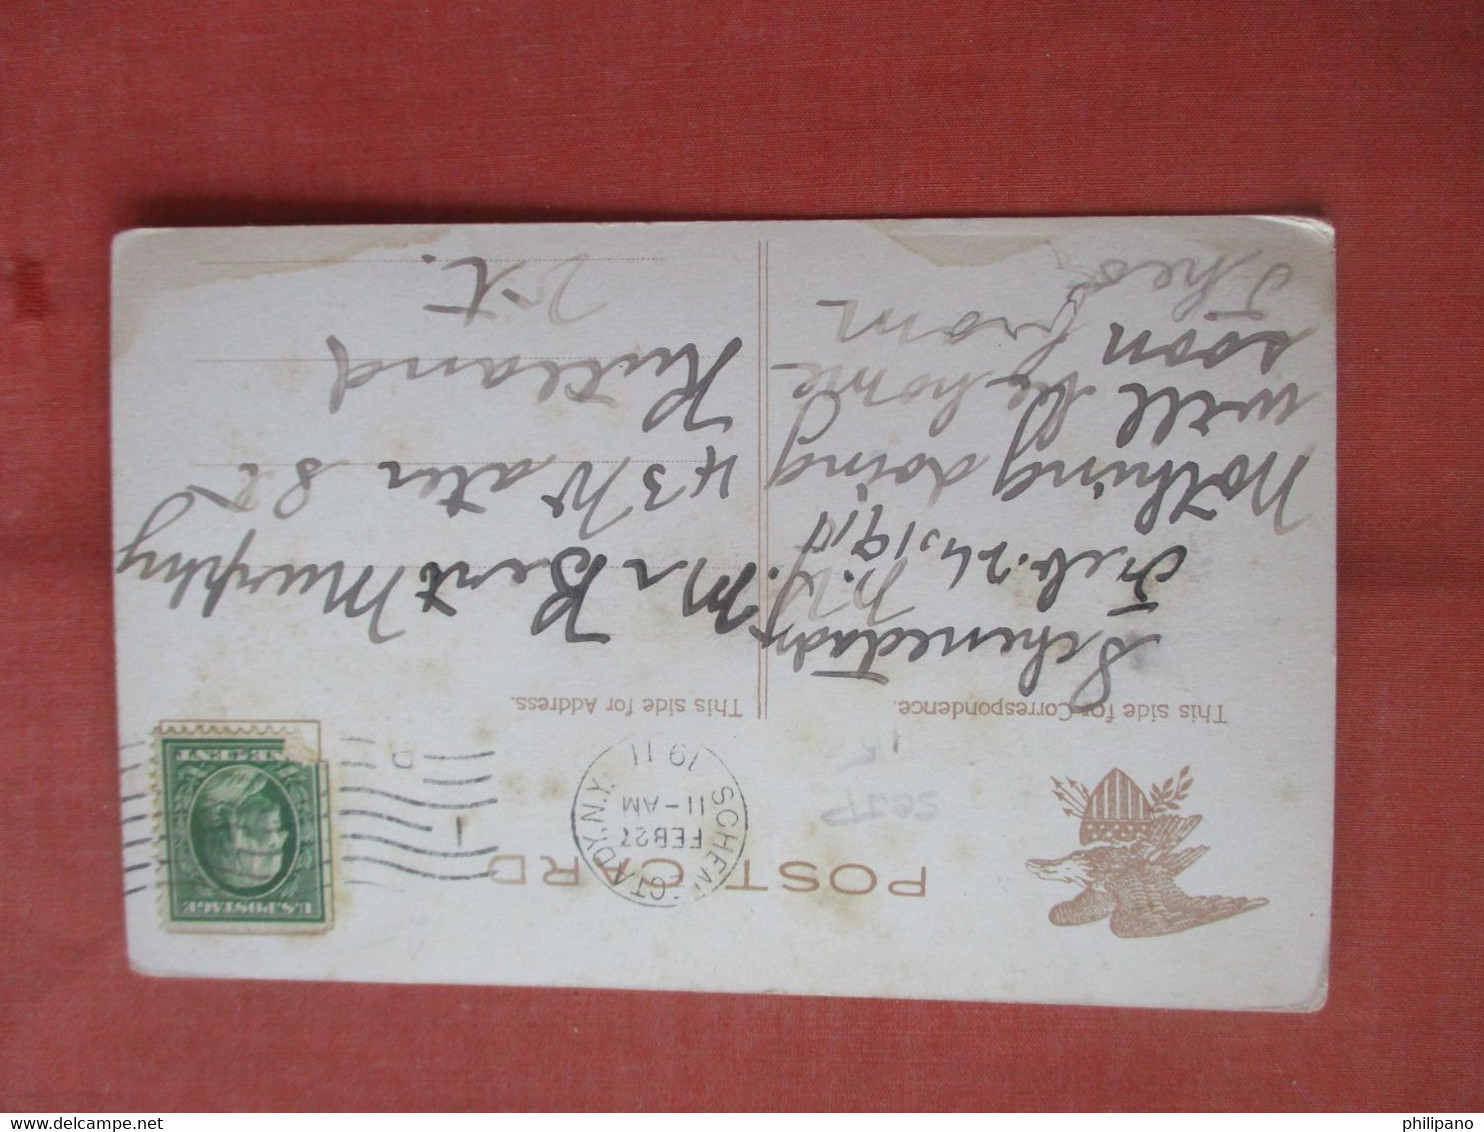 POST CARD
SCHENECTADY, N.Y.
FEB 27
11-AM
1911
U.S. POSTAGE
This side for Correspondence.
This side for Address.
Schenectady
N.Y.
Feb. 24, 1911
Nothing doing
will be home
soon from
Theo
Mr Bert Murphy
43 Water St
Rutland
Vt.
philipano
delcampe.net